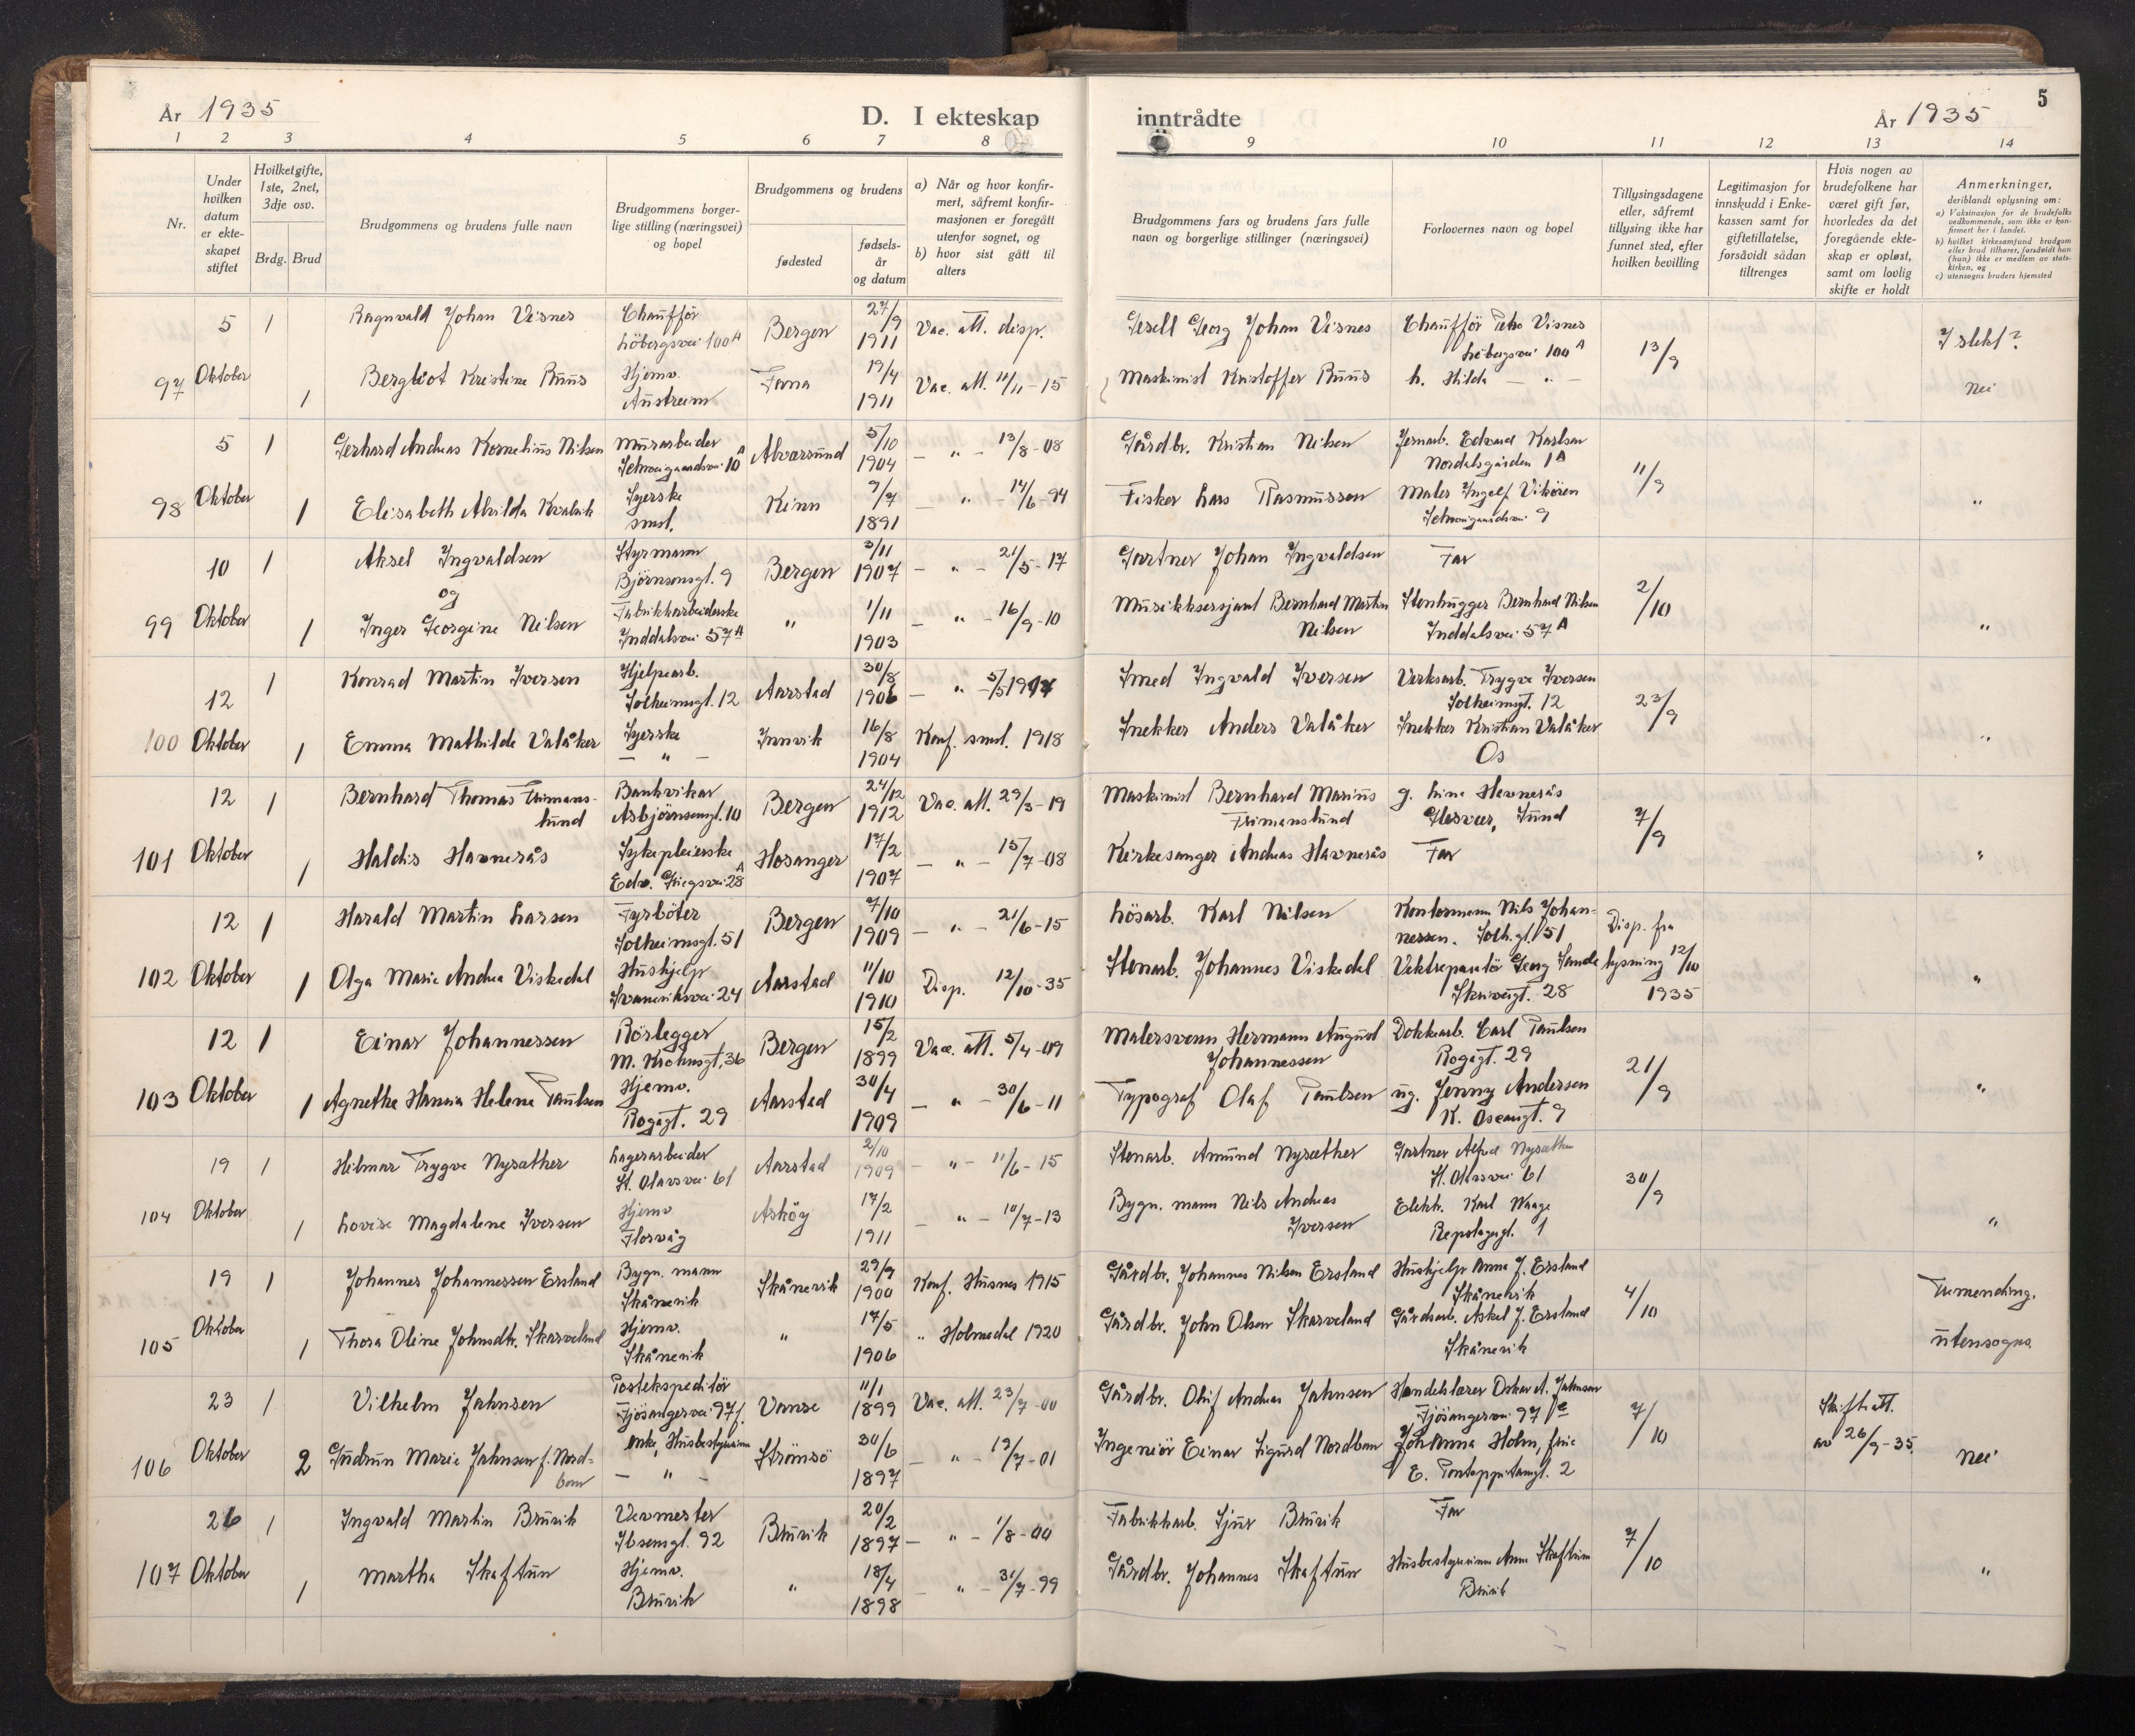 År 1935
D. I ekteskap
inntrådte
År 1935
5
1 2 3 4 5 6 7 8 9 10 11 12 13 14
Nr.
Under hvilken datum er ekteskapet stiftet
Hvilket gifte, 1ste, 2net, 3dje osv.
Brdg. Brud
Brudgommens og brudens fulle navn
Brudgommens borgerlige stilling (næringsvei) og bopel
Brudgommens og brudens
fødested
fødselsår og datum
a) Når og hvor konfirmert, såfremt konfirmasjonen er foregått utenfor sognet, og
b) hvor sist gått til alters
Brudgommens fars og brudens fars fulle navn og borgerlige stillinger (næringsvei)
Forlovernes navn og bopel
Tillysingsdagene eller, såfremt tillysing ikke har funnet sted, efter hvilken bevilling
Legitimasjon for innskudd i Enkekassen samt for giftetillatelse, forsåvidt sådan tiltrenges
Hvis nogen av brudefolkene har været gift før, hvorledes da det foregående ekteskap er opløst, samt om lovlig skifte er holdt
Anmerkninger, deriblandt oplysning om:
a) Vaksinasjon for de brudefolks vedkommende, som ikke er konfirmert her i landet.
b) hvilket kirkesamfund brudgom eller brud tilhører, forsåvidt han (hun) ikke er medlem av statskirken, og
c) utensogns bruders hjemsted
5 1 Ragnvald Johan Visnes Chauffør Bergen 27/9 1911 Vac. att. disp. Gesell Georg Johan Visnes Chauffør Visnes 13/9 I slekt?
Löbergsvei 100A
100A
97 Oktober 1 Bergliot Kristine Ruus Hjemv. Fana 19/4 1911 Vac. att. 11/11-15 Maskinist Kristoffer Ruus h. Hilda — " — Nei
Austreim
5 1 Gerhard Andreas Kornelius Nilsen Murarbeider Alversund 5/10 1904 — " — 13/8-08 Gårdbr. Kristian Nilsen Jernarb. Edvard Karlsen 11/9
Schweigaardsvei 10A
Nordalsgården 1A
98 Oktober 1 Elisabeth Alvilda Syerske Kinn 9/7 1891 — " — 14/6-94 Fisker Lars Rasmussen Maler Ingolf Vikören "
smst.
Schweigaardsvei 9
10 1 Aksel Ingvaldsen Styrmann Bergen 3/11 1907 — " — 21/5-17 Gartner Johan Ingvaldsen Far 2/10
og
Björnsonsgt. 9
99 Oktober 1 Inger Georgine Nilsen Fabrikkarbeiderske " 1/11 1903 — " — 16/9-10 Musikksersjant Bernhard Martin Nilsen Stenhugger Bernhard Nilsen "
Inddalsvei 57A
Inddalsvei 57A
12 1 Konrad Martin Iversen Hjelpearb. Aarstad 30/8 1906 — " — 5/5 Smed Ingvald Iversen Verksarb. Trygve Iversen 23/9
Solheimsgt. 12
Solheimsgt. 12
100 Oktober 1 Emma Mathilde Valåker Syerske Innvik 16/8 1904 Konf. smst. 1918 Snekker Anders Valåker Snekker Kristian Valåker "
— " —
Os
12 1 Bernhard Thomas Bankvikar Bergen 24/12 1912 Vac. att. 29/3-19 Maskinist Bernhard Marius g. Line Havnerås 7/9
Asbjörnsensgt. 10
Glesvær, Sund
101 Oktober 1 Haldis Havnerås Sykepleierske Hosanger 17/2 1907 — " — 15/7-08 Kirkesanger Andreas Havnerås Far "
Edv. Griegsvei 28A
12 1 Harald Martin Larsen Fyrböter Bergen 7/10 1909 — " — 21/6-15 Lösarb. Karl Nilsen Kontormann Nils Johannessen. Solh.gt. 51 Disp. fra lysning 12/10 1935
Solheimsgt. 51
102 Oktober 1 Olga Marie Andrea Viskedal Hushjelp Aarstad 11/10 1910 Disp. 12/10-35 Stenarb. Johannes Viskedal Vektreparatör Georg Sande "
24
28
12 1 Einar Johannessen Rörlegger Bergen 15/2 1899 Vac. att. 5/4-09 Malersvenn Hermann August Johannessen Dokkarb. Carl Paulsen 21/9
M. Krohnsgt. 36
Rogagt. 29
103 Oktober 1 Agnethe Hanna Helene Paulsen Hjemv. Aarstad 30/4 1909 — " — 30/6-11 Typograf Olaf Paulsen ug. Jenny Andersen "
Rogagt. 29
9
19 1 Hilmar Trygve Nysæther Lagerarbeider Aarstad 2/10 1909 — " — 11/6-15 Stenarb. Amund Nysæther Gartner Alfred Nysæther 30/9
St. Olavsvei 61
St. Olavsvei 61
104 Oktober 1 Lovise Magdalene Iversen Hjemv Asköy 17/2 1911 — " — 10/7-13 Bygn. mann Nils Andreas Iversen Elektr. Karl Waage "
Florvåg
Repslagergt. 1
19 1 Johannes Johannessen Ersland Bygn. mann Skånevik 29/9 1900 Konf. Husnes 1915 Gårdbr. Johannes Nilsen Ersland Hushjelp Anna J. Ersland 4/10 Trimenching.
Skånevik
Skånevik
105 Oktober 1 Thora Oline Johnsdtr. Skarveland Hjemv. " 17/5 1906 " Holmedal 1920 Gårdbr. John Olsen Skarveland Gårdsarb. Askel J. Ersland utensogns.
Skånevik
Skånevik
23 1 Vilhelm Jahnsen Postekspeditör Vanse 11/1 1899 Vac. att. 23/7-00 Gårdbr. Oluf Andreas Jahnsen Handelslærer Oskar A. Jahnsen 7/10 Skifteatt. av 26/9-35.
Fjösangervei 97
Fjösangervei 97
106 Oktober 2 Gudrun Marie Jahnsen f. Nordbom enke, Husbestyrerinne Strömsö 30/6 1897 — " — 19/7-01 Ingeniör Einar Sigurd Nordbom Johanna Holm, frue Nei
— " —
E. Pontoppidansgt. 2
26 1 Ingvald Martin Bruvik Vevmester Bruvik 20/2 1897 — " — 1/8-00 Fabrikkarb. Sjur Bruvik Far 7/10
Ibsensgt. 92
107 Oktober 1 Martha Skaftun Hjemv. " 18/4 1898 — " — 31/7-99 Gårdbr. Johannes Skaftun Husbestyrerinne Anna Skaftun "
Bruvik
Bruvik